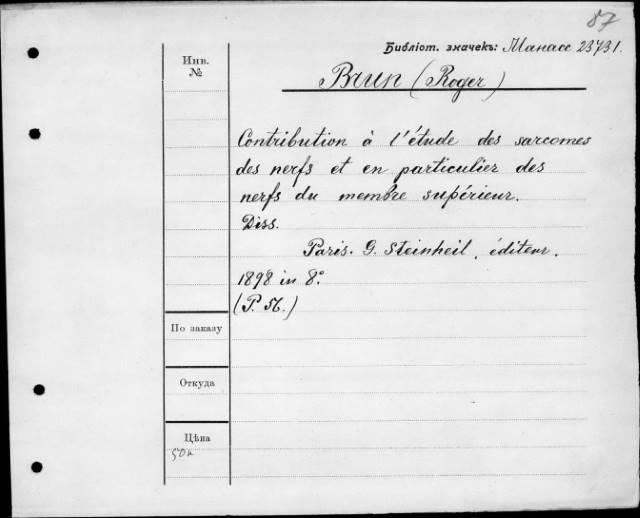 87
Библіот. значекъ: Манасс 23731.
Инв.
№
Brun (Roger)
Contribution à l'étude des sarcomes
des nerfs et en particulier des
nerfs du membre supérieur.
Diss.
Paris. G. Steinheil, éditeur.
1898 in 8°.
(P. 56.)
По заказу
Откуда
Цѣна
50к